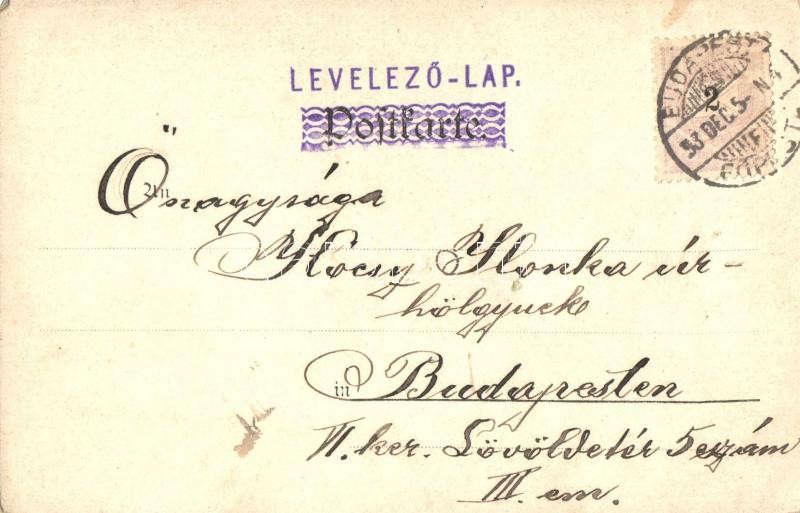 LEVELEZŐ-LAP.
Postkarte.
BUDAPEST
2
DEC. 5
An
Önagysága
Kócsy Ilonka úr-
hölgynek
in
Budapesten
VI. ker. Lövöldetér 5 szám
III. em.